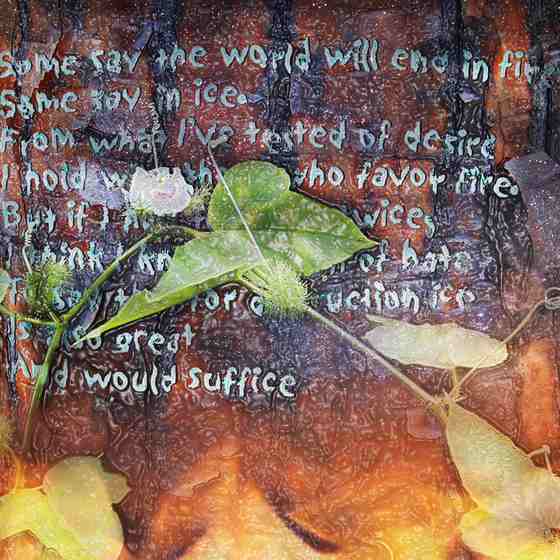 Some say the world will end in fire
Some say in ice.
From what I've tested of desire
I hold who favor fire.
But if
of hate
for ice
Is so great
And would suffice